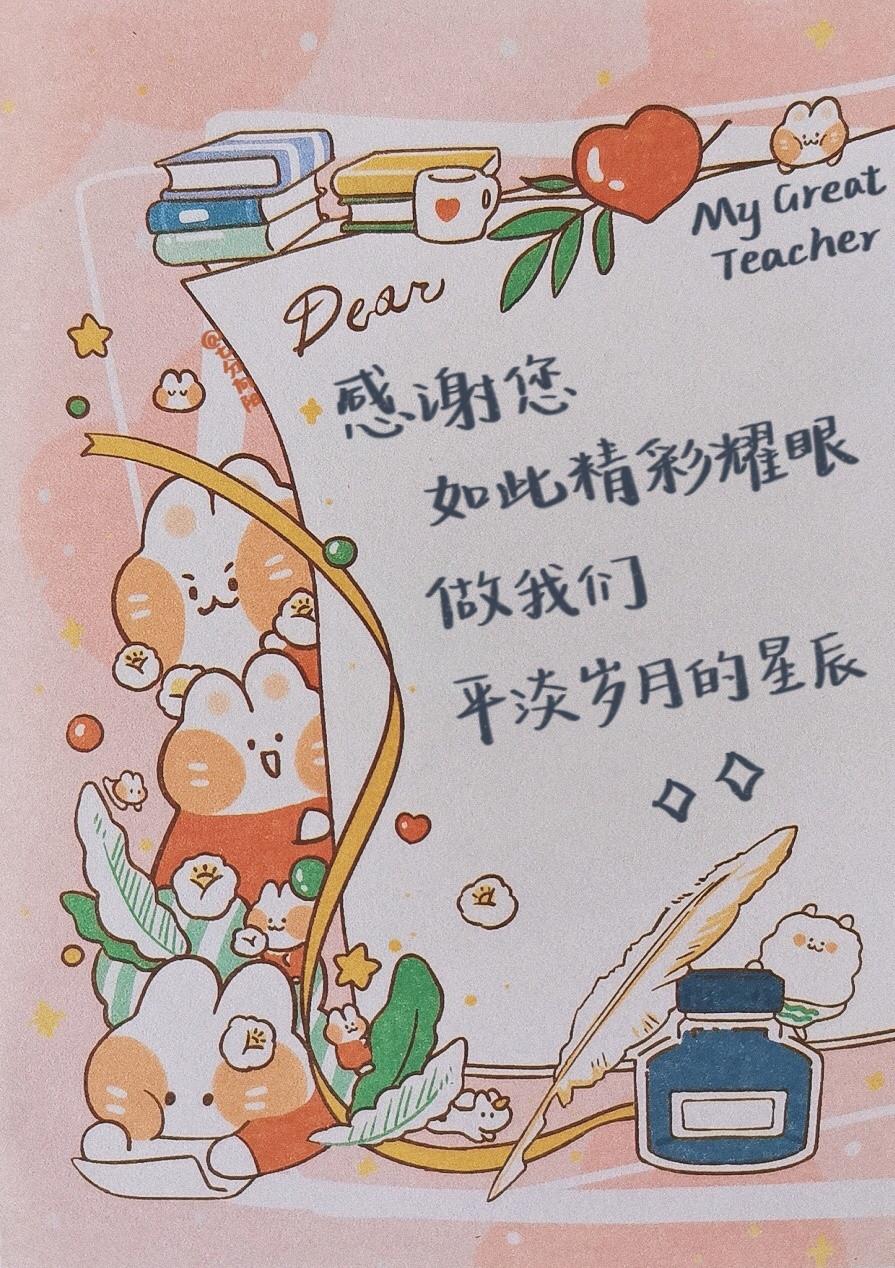 My Great
Teacher
Dear
感谢您
如此精彩耀眼
做我们
平淡岁月的星辰